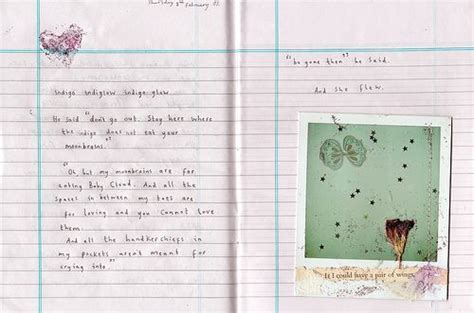 Thursday 8th February
Indigo indiglow indigo glow.
He said "don't go out. Stay here where
the indigo does not eat your
moonbrains."
"Oh but my moonbrains are for
eating Baby Cloud. And all the
spaces in between my toes are
for loving and you cannot love
them.
And all the handkerchiefs in
my pockets aren't meant for
crying into."
"be gone then" he said.
And she flew.
If I could have a pair of wings,